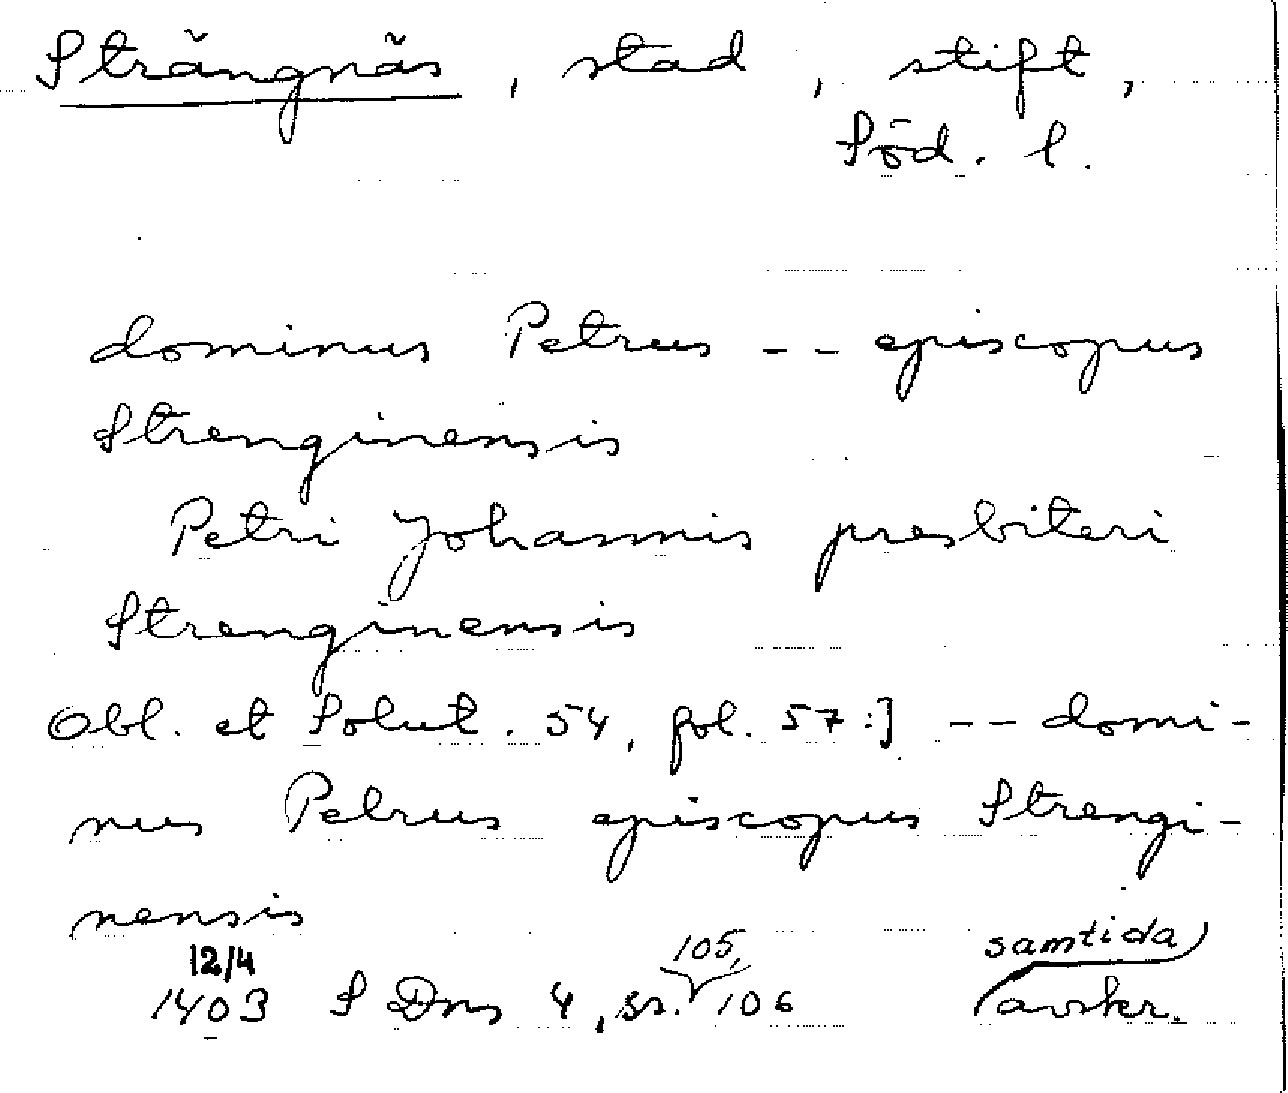 Strängnäs, stad, stift,
Söd. l.
dominus Petrus -- episcopus
Strenginensis
Petri Johannis presbiteri
Strenginensis
Obl. et Solut. 54, fol. 57:] -- domi-
nus Petrus episcopus Strengi-
nensis
12/4 105, samtida
1403 S Dns 4, ss. 106 avskr.